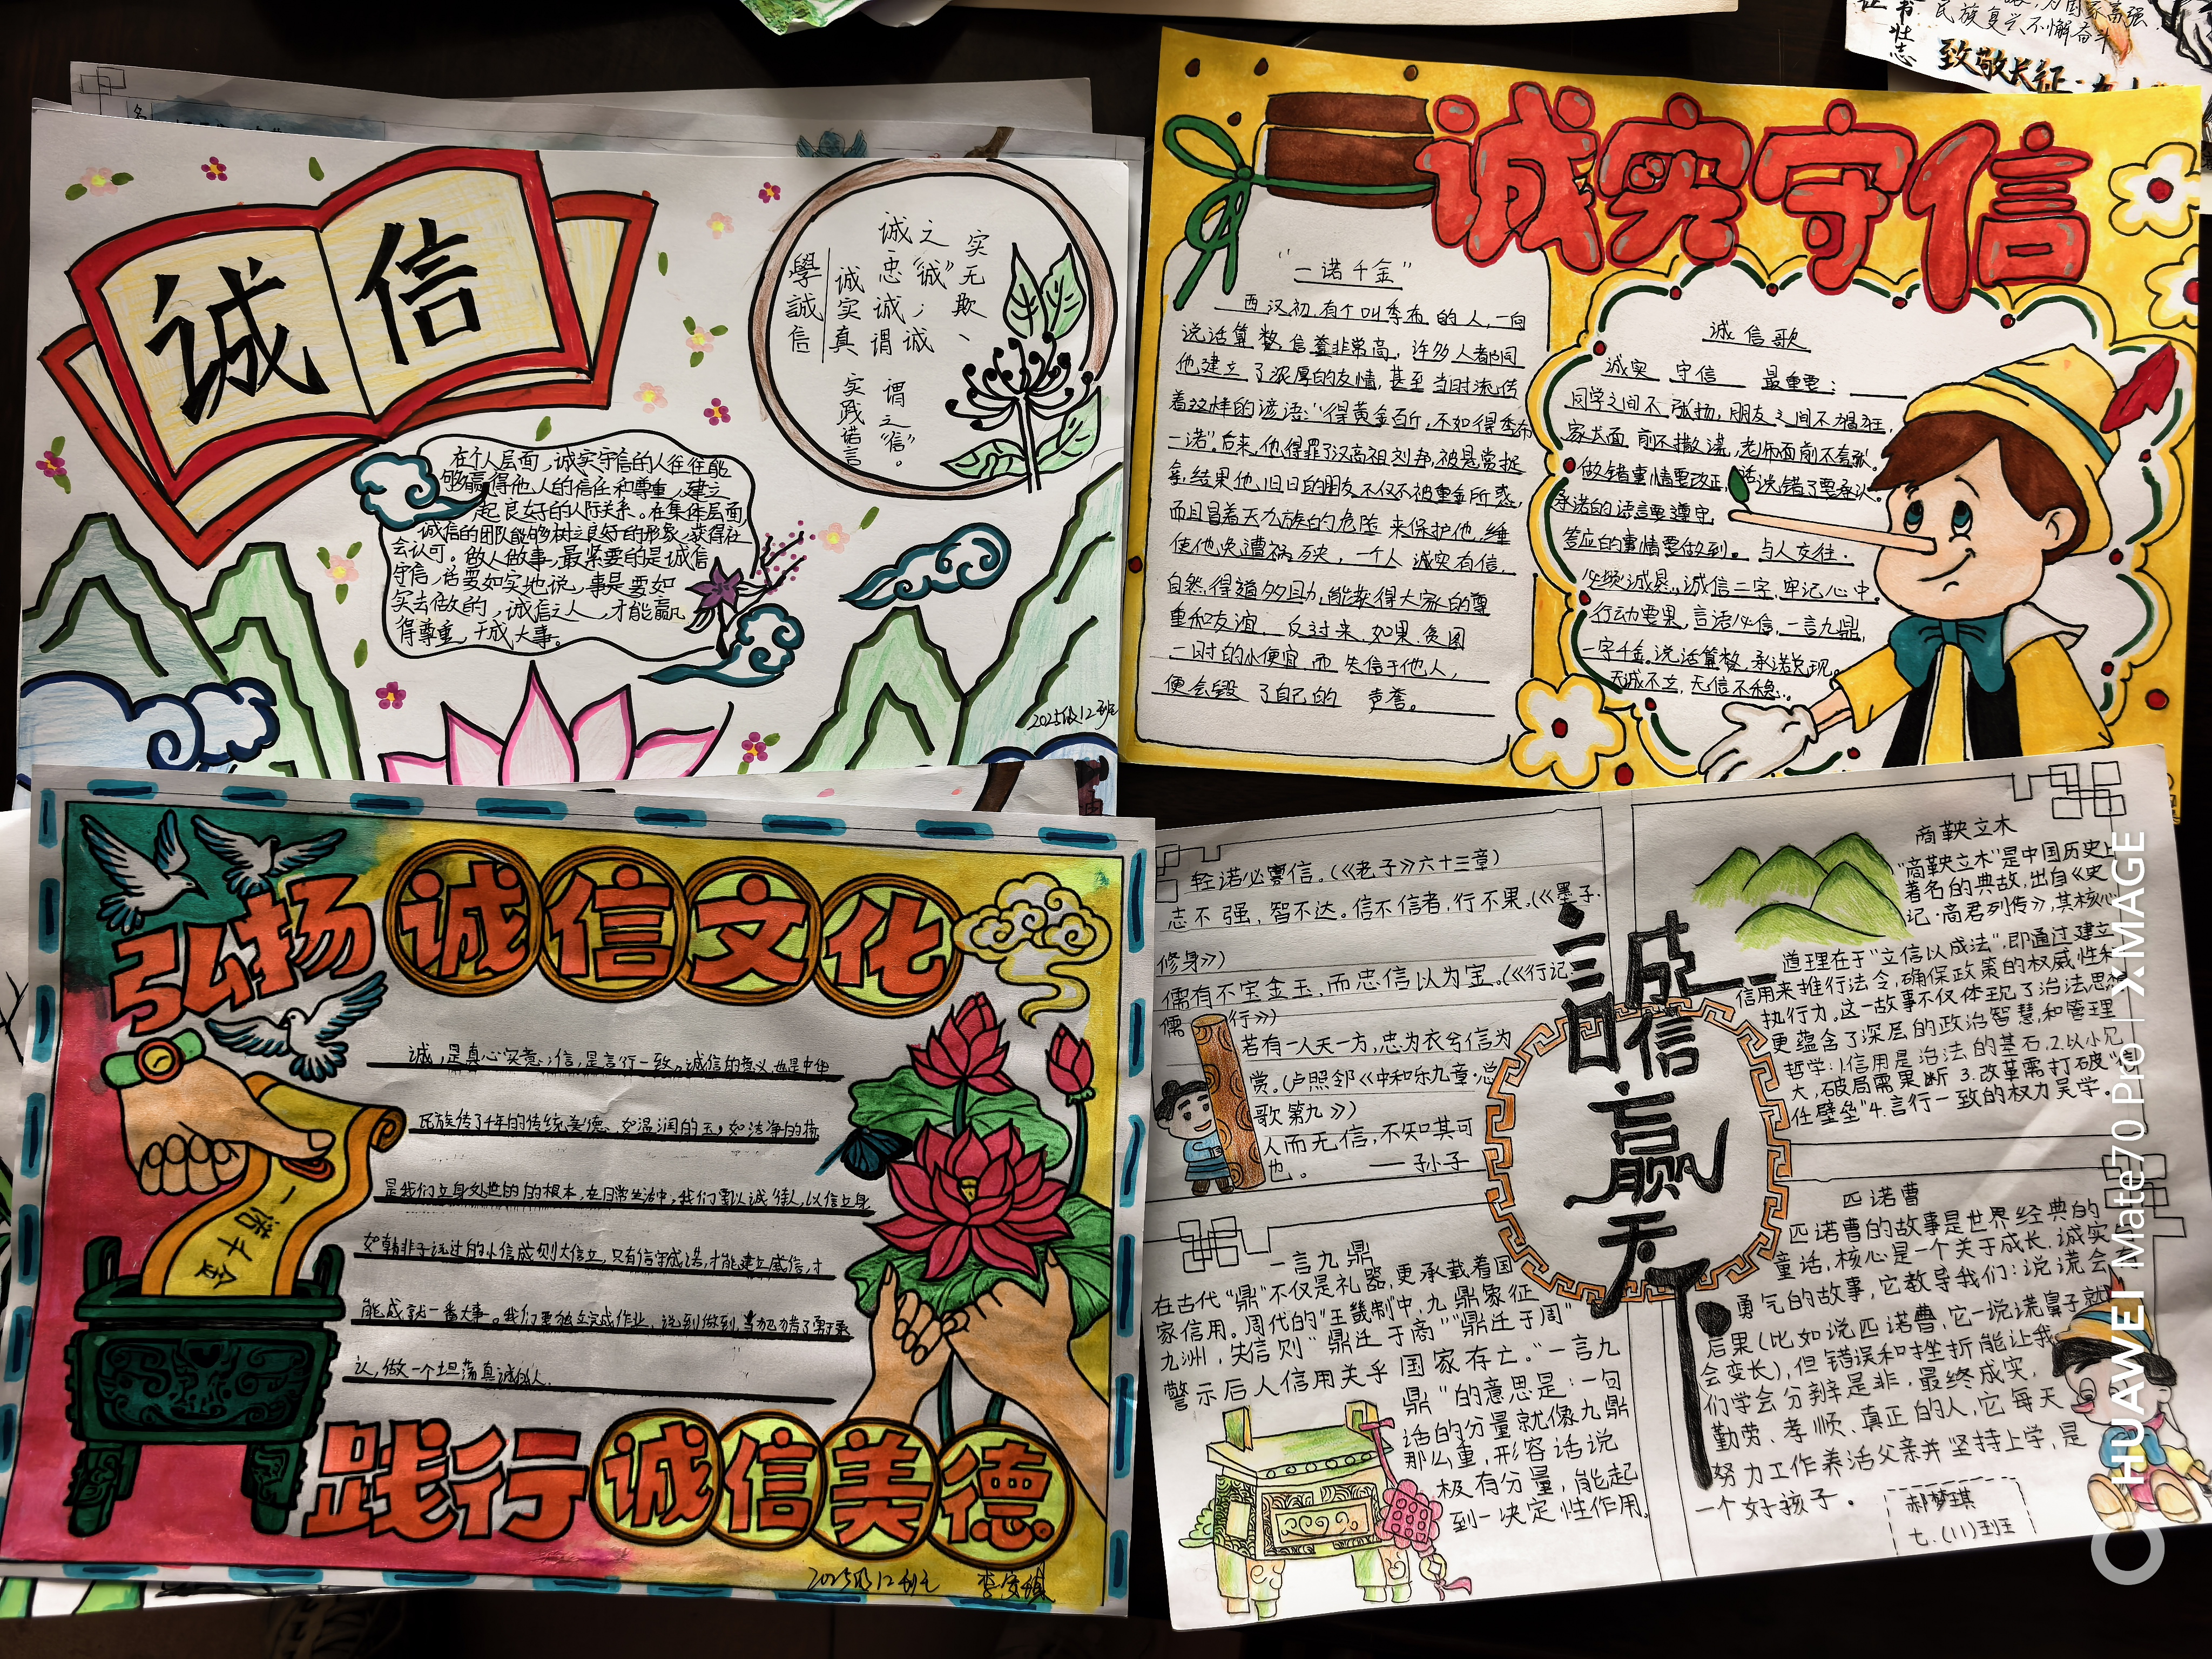 诚信
學誠信
诚实真
实践诺言
诚之
忠诚谓
“诚”；诚
谓之“信”。
实无欺、
在个人层面，诚实守信的人往往能
够赢得他人的信任和尊重，建立
起良好的人际关系。在集体层面
诚信的团队能够树立良好的形象，获得社
会认可。做人做事，最紧要的是诚信
守信，话要如实地说，事是要如
实去做的，诚信之人，才能赢
得尊重，干成大事。
2025级12班
诚实守信
“一诺千金”
西汉初有个叫季布的人，一向
说话算数，信誉非常高，许多人都同
他建立了浓厚的友情，甚至当时流传
着这样的谚语：“得黄金百斤，不如得季布
一诺”。后来，他得罪了汉高祖刘邦，被悬赏捉
拿，结果他旧日的朋友不仅不被重金所惑，
而且冒着灭九族的危险来保护他，
使他免遭祸殃，一个人诚实有信，
自然得道多助，能获得大家的尊
重和友谊。反过来，如果贪图
一时的小便宜，而失信于他人，
便会毁了自己的声誉。
诚信歌
诚实守信最重要：
同学之间不张扬，朋友之间不猖狂，
家长面前不撒谎，老师面前不夸张。
做错事情要改正，话说错了要承认。
承诺的语言要遵守，
答应的事情要做到。与人交往，
必须诚恳，诚信二字，牢记心中。
行动要果，言语必信，一言九鼎，
一字千金。说话算数，承诺兑现。
无诚不立，无信不稳。
致敬长征
民族复兴不懈奋斗
弘扬诚信文化
诚，是真心实意；信，是言行一致。诚信的意义也是中华
民族传了千年的传统美德，如温润的玉，如洁净的
是我们立身处世的的根本，在日常生活中，我们要以诚待人，以信立身
如韩非子说过的小信成则大信立，只有信守成诺，才能建立威信，才
能成就一番大事。我们要独立完成作业，说到做到，
认，做一个坦荡真诚的人.
一诺千金
践行诚信美德
2025级12班
轻诺必寡信。(《老子》六十三章)
志不强，智不达。信不信者，行不果。(《墨子.
修身》)
儒有不宝金玉，而忠信以为宝。(《行记.
儒行》)
若有一人天一方，忠为衣兮信为
赏。(卢照邻《中和乐九章·总
歌第九》)
人而无信，不知其可
也。——孙子
一言九鼎
在古代“鼎”不仅是礼器，更承载着国
家信用。周代的“王畿制中，九鼎象征
九洲，失信则“鼎迁于商”“鼎迁于周”
警示后人信用关乎国家存亡。“一言九
鼎”的意思是：一句
话的分量就像九鼎
那么重，形容话说
极有分量，能起
到一决定性作用.
誠信赢天下
商鞅立木
“商鞅立木”是中国历史上
著名的典故，出自《史
记·商君列传》，其核心
道理在于“立信以成法”，即通过建立
信用来推行法令，确保政策的权威性和
执行力，这一故事不仅体现了治法思想
更蕴含了深层的政治智慧，和管理
哲学：1.信用是治法的基石.2.以小见
大，破局需果断 3.改革需打破“信
任壁垒”4.言行一致的权力美学.
匹诺曹
匹诺曹的故事是世界经典的
童话，核心是一个关于成长、诚实
勇气的故事，它教导我们：说谎会有
后果(比如说匹诺曹，它一说谎鼻子就
会变长)，但错误和挫折能让我
们学会分辨是非，最终成实，
勤劳、孝顺、真正的人，它每天
努力工作养活父亲并坚持上学，是
一个好孩子。
郝梦琪
七.(11)班
HUAWEI Mate70 Pro | XMAGE